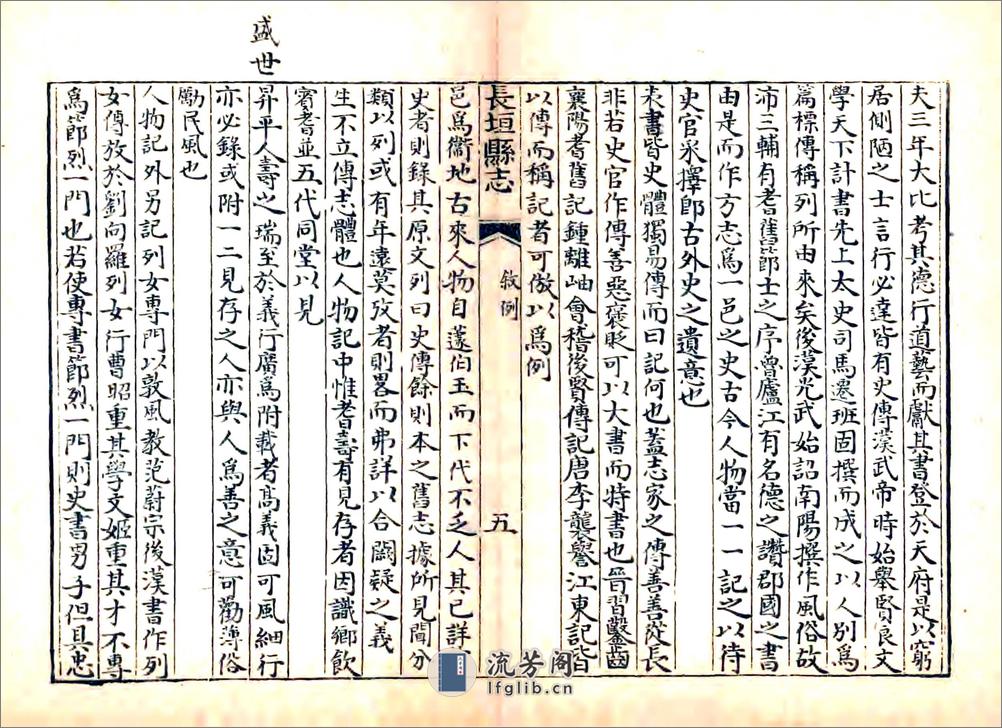 夫三年大比考其德行道藝而獻其書登於天府是以窮
居側陋之士言行必達皆有史傳漢武帝時始舉賢良文
學天下計書先上太史司馬遷班固撰而成之以人別爲
篇標傳稱列所由來矣後漢光武始詔南陽撰作風俗故
沛三輔有耆舊節士之序魯廬江有名德之讚郡國之書
由是而作方志爲一邑之史古今人物當一一記之以待
史官采擇卽古外史之遺意也
表書皆史體獨易傳而曰記何也蓋志家之傳善善從長
非若史官作傳善惡襃貶可以大書而特書也晉習鑿齒
襄陽耆舊記鍾離岫會稽後賢傳記唐李襲譽江東記皆
以傳而稱記者可倣以爲例
長垣縣志
敘例
五
邑爲衞地古來人物自蘧伯玉而下代不乏人其已詳
史者則錄其原文列曰史傳餘則本之舊志據所見聞分
類以列或有年遠莫攷者則畧而弗詳以合闕疑之義
生不立傳志體也人物記中惟耆壽有見存者因識鄉飲
賓耆並五代同堂以見
盛世
昇平人壽之瑞至於義行廣爲附載者高義固可風細行
亦必錄或附一二見存之人亦與人爲善之意可勸薄俗
勵民風也
人物記外另記列女專門以敦風教范蔚宗後漢書作列
女傳放於劉向羅列女行曹昭重其學文姬重其才不專
爲節烈一門也若使專書節烈一門則史書男子但具忠
流芳阁
lfglib.cn